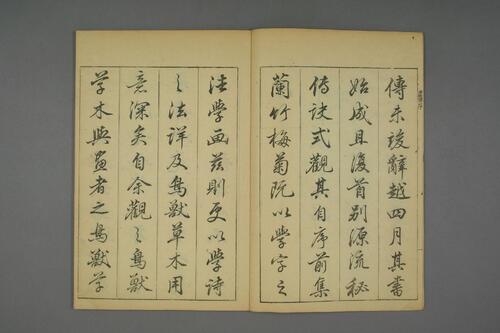 傳未竣辭越四月其書
始成且復首別源流秘
傳訣式觀其自序前集
蘭竹梅菊既以學字之
法學画茲則更以學詩
之法詳及鳥獸草木用
意深矣自余觀之鳥獸
草木與畫者之鳥獸草